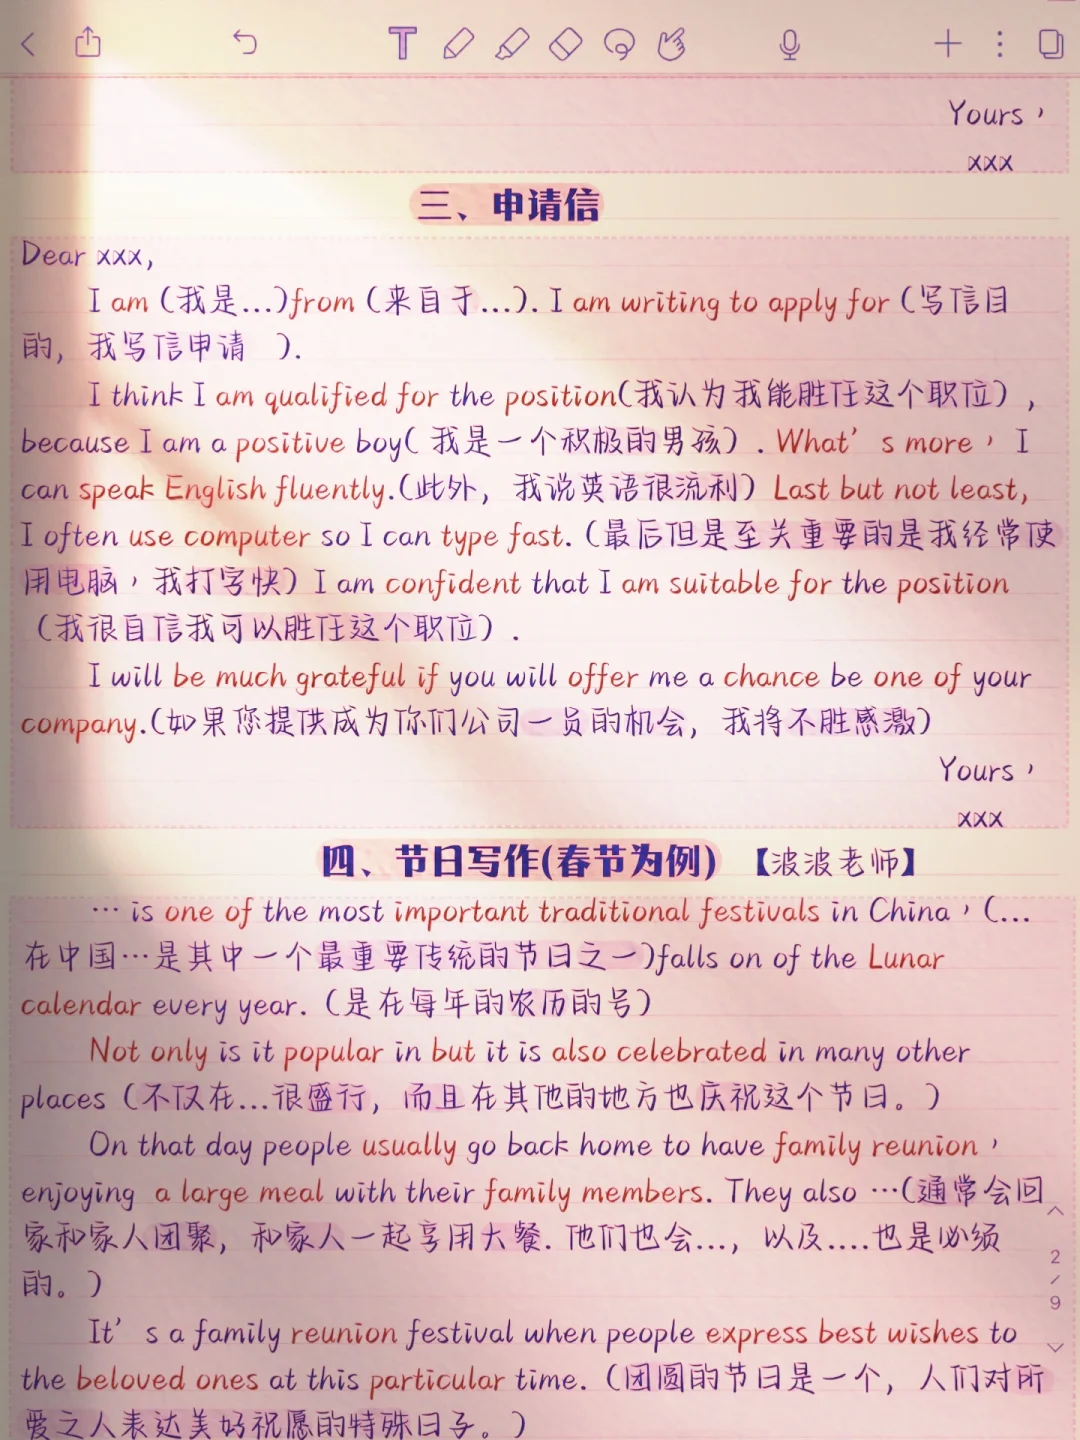 Yours，
xxx
三、申请信
Dear xxx,
I am (我是...)from (来自于...). I am writing to apply for (写信目
的，我写信申请 ).
I think I am qualified for the position(我认为我能胜任这个职位) ,
because I am a positive boy( 我是一个积极的男孩) . What’s more，I
can speak English fluently.(此外，我说英语很流利) Last but not least,
I often use computer so I can type fast. (最后但是至关重要的是我经常使
用电脑，我打字快) I am confident that I am suitable for the position
(我很自信我可以胜任这个职位) .
I will be much grateful if you will offer me a chance be one of your
company.(如果您提供成为你们公司一员的机会，我将不胜感激)
Yours，
xxx
四、节日写作(春节为例) 【波波老师】
… is one of the most important traditional festivals in China，(...
在中国…是其中一个最重要传统的节日之一)falls on of the Lunar
calendar every year. (是在每年的农历的号)
Not only is it popular in but it is also celebrated in many other
places (不仅在...很盛行，而且在其他的地方也庆祝这个节日。)
On that day people usually go back home to have family reunion，
enjoying a large meal with their family members. They also …(通常会回
家和家人团聚，和家人一起享用大餐. 他们也会...，以及....也是必须
的。)
2
/
9
It’s a family reunion festival when people express best wishes to
the beloved ones at this particular time. (团圆的节日是一个，人们对所
爱之人表达美好祝愿的特殊日子。)